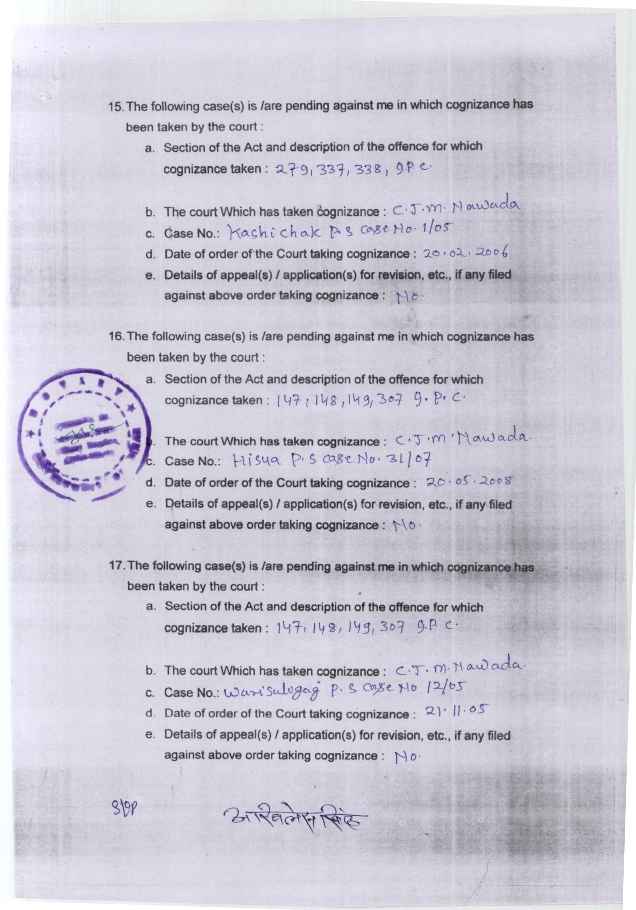 15. The following case(s) is /are pending against me in which cognizance has
been taken by the court :
a. Section of the Act and description of the offence for which
cognizance taken : 279, 337, 338, IPC.
b. The court Which has taken cognizance : C.J.M. Nawada
c. Case No.: Kashichak P S Case No. 1/05
d. Date of order of the Court taking cognizance : 20.02.2006
e. Details of appeal(s) / application(s) for revision, etc., if any filed
against above order taking cognizance : No.
16. The following case(s) is /are pending against me in which cognizance has
been taken by the court :
a. Section of the Act and description of the offence for which
cognizance taken : 147, 148, 149, 307 I.P.C.
NOTARY
b. The court Which has taken cognizance : C.J.M. Nawada.
c. Case No.: Hisua P.S Case No. 31/07
d. Date of order of the Court taking cognizance : 20.05.2008
e. Details of appeal(s) / application(s) for revision, etc., if any filed
against above order taking cognizance : No.
17. The following case(s) is /are pending against me in which cognizance has
been taken by the court :
a. Section of the Act and description of the offence for which
cognizance taken : 147, 148, 149, 307 I.P.C.
b. The court Which has taken cognizance : C.J.M. Nawada.
c. Case No.: P.S Case No 12/05
d. Date of order of the Court taking cognizance : 21.11.05
e. Details of appeal(s) / application(s) for revision, etc., if any filed
against above order taking cognizance : No.
अखिलेश सिंह